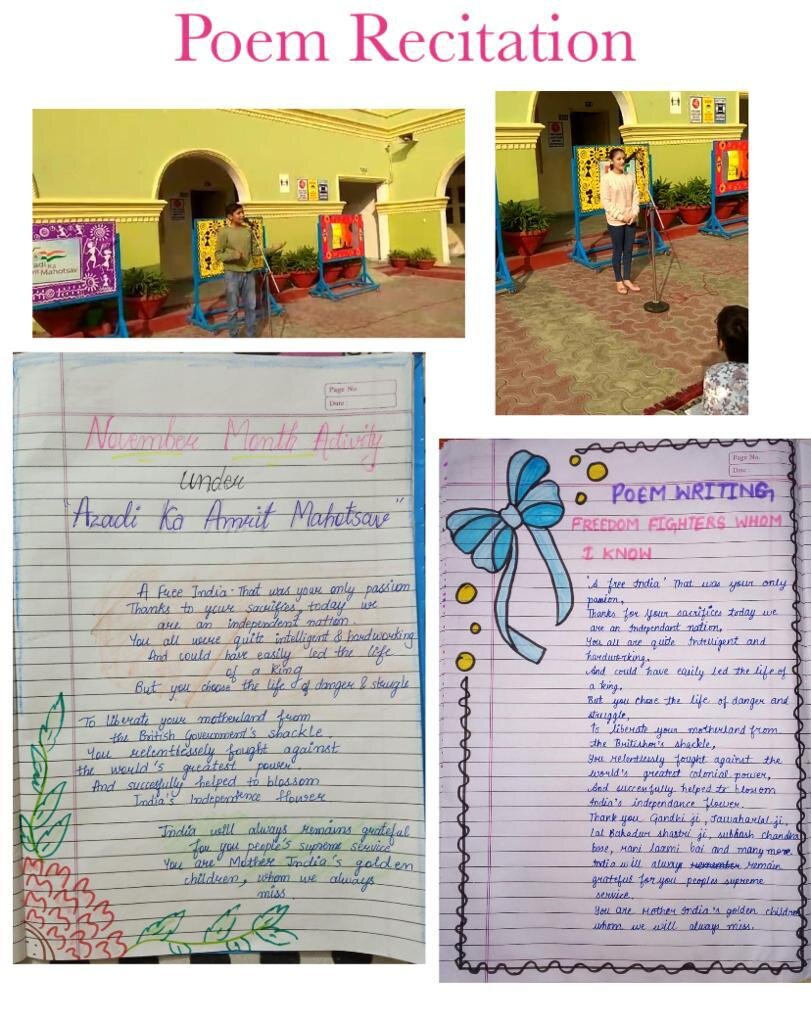 Poem Recitation
adi Ka
rit Mahotsav
Page No.
Date:
November Month Activity
under
"Azadi Ka Amrit Mahotsav"
A Free India - That was your only passion
Thanks to your sacrifices, today we
are an independent nation.
You all were quite intelligent & hardworking
And could have easily led the life
of a king
But you choose the life of danger & strugle
To liberate your motherland from
the British Government's shackle.
You relentlessely fought against
the world's greatest power.
And succesfully helped to blossom
India's Independence flower
India will always remains grateful
for you people's supreme service
You are Mother India's golden
children, whom we always
miss.
Page No.
Date:
POEM WRITING,
FREEDOM FIGHTERS WHOM
I KNOW
'A free India' That was your only
passion,
Thanks for your sacrifices today we
are an Independant nation,
You all are quite Intelligent and
hardworking,
And could have easily led the life of
a king,
But you chose the life of danger and
struggle,
To liberate your motherland from
the Britisher's shackle,
You relentlessly fought against the
world's greatest colonial power,
And successfully helped to blossom
India's independance flower.
Thank you Gandhi ji, Jawaharlal ji,
lal Bahadur shastri ji, subhash chandra
bose, rani laxmi bai and many more.
India will always remember remain
grateful for you peoples supreme
service.
You are Mother India's golden children
whom we will always miss.